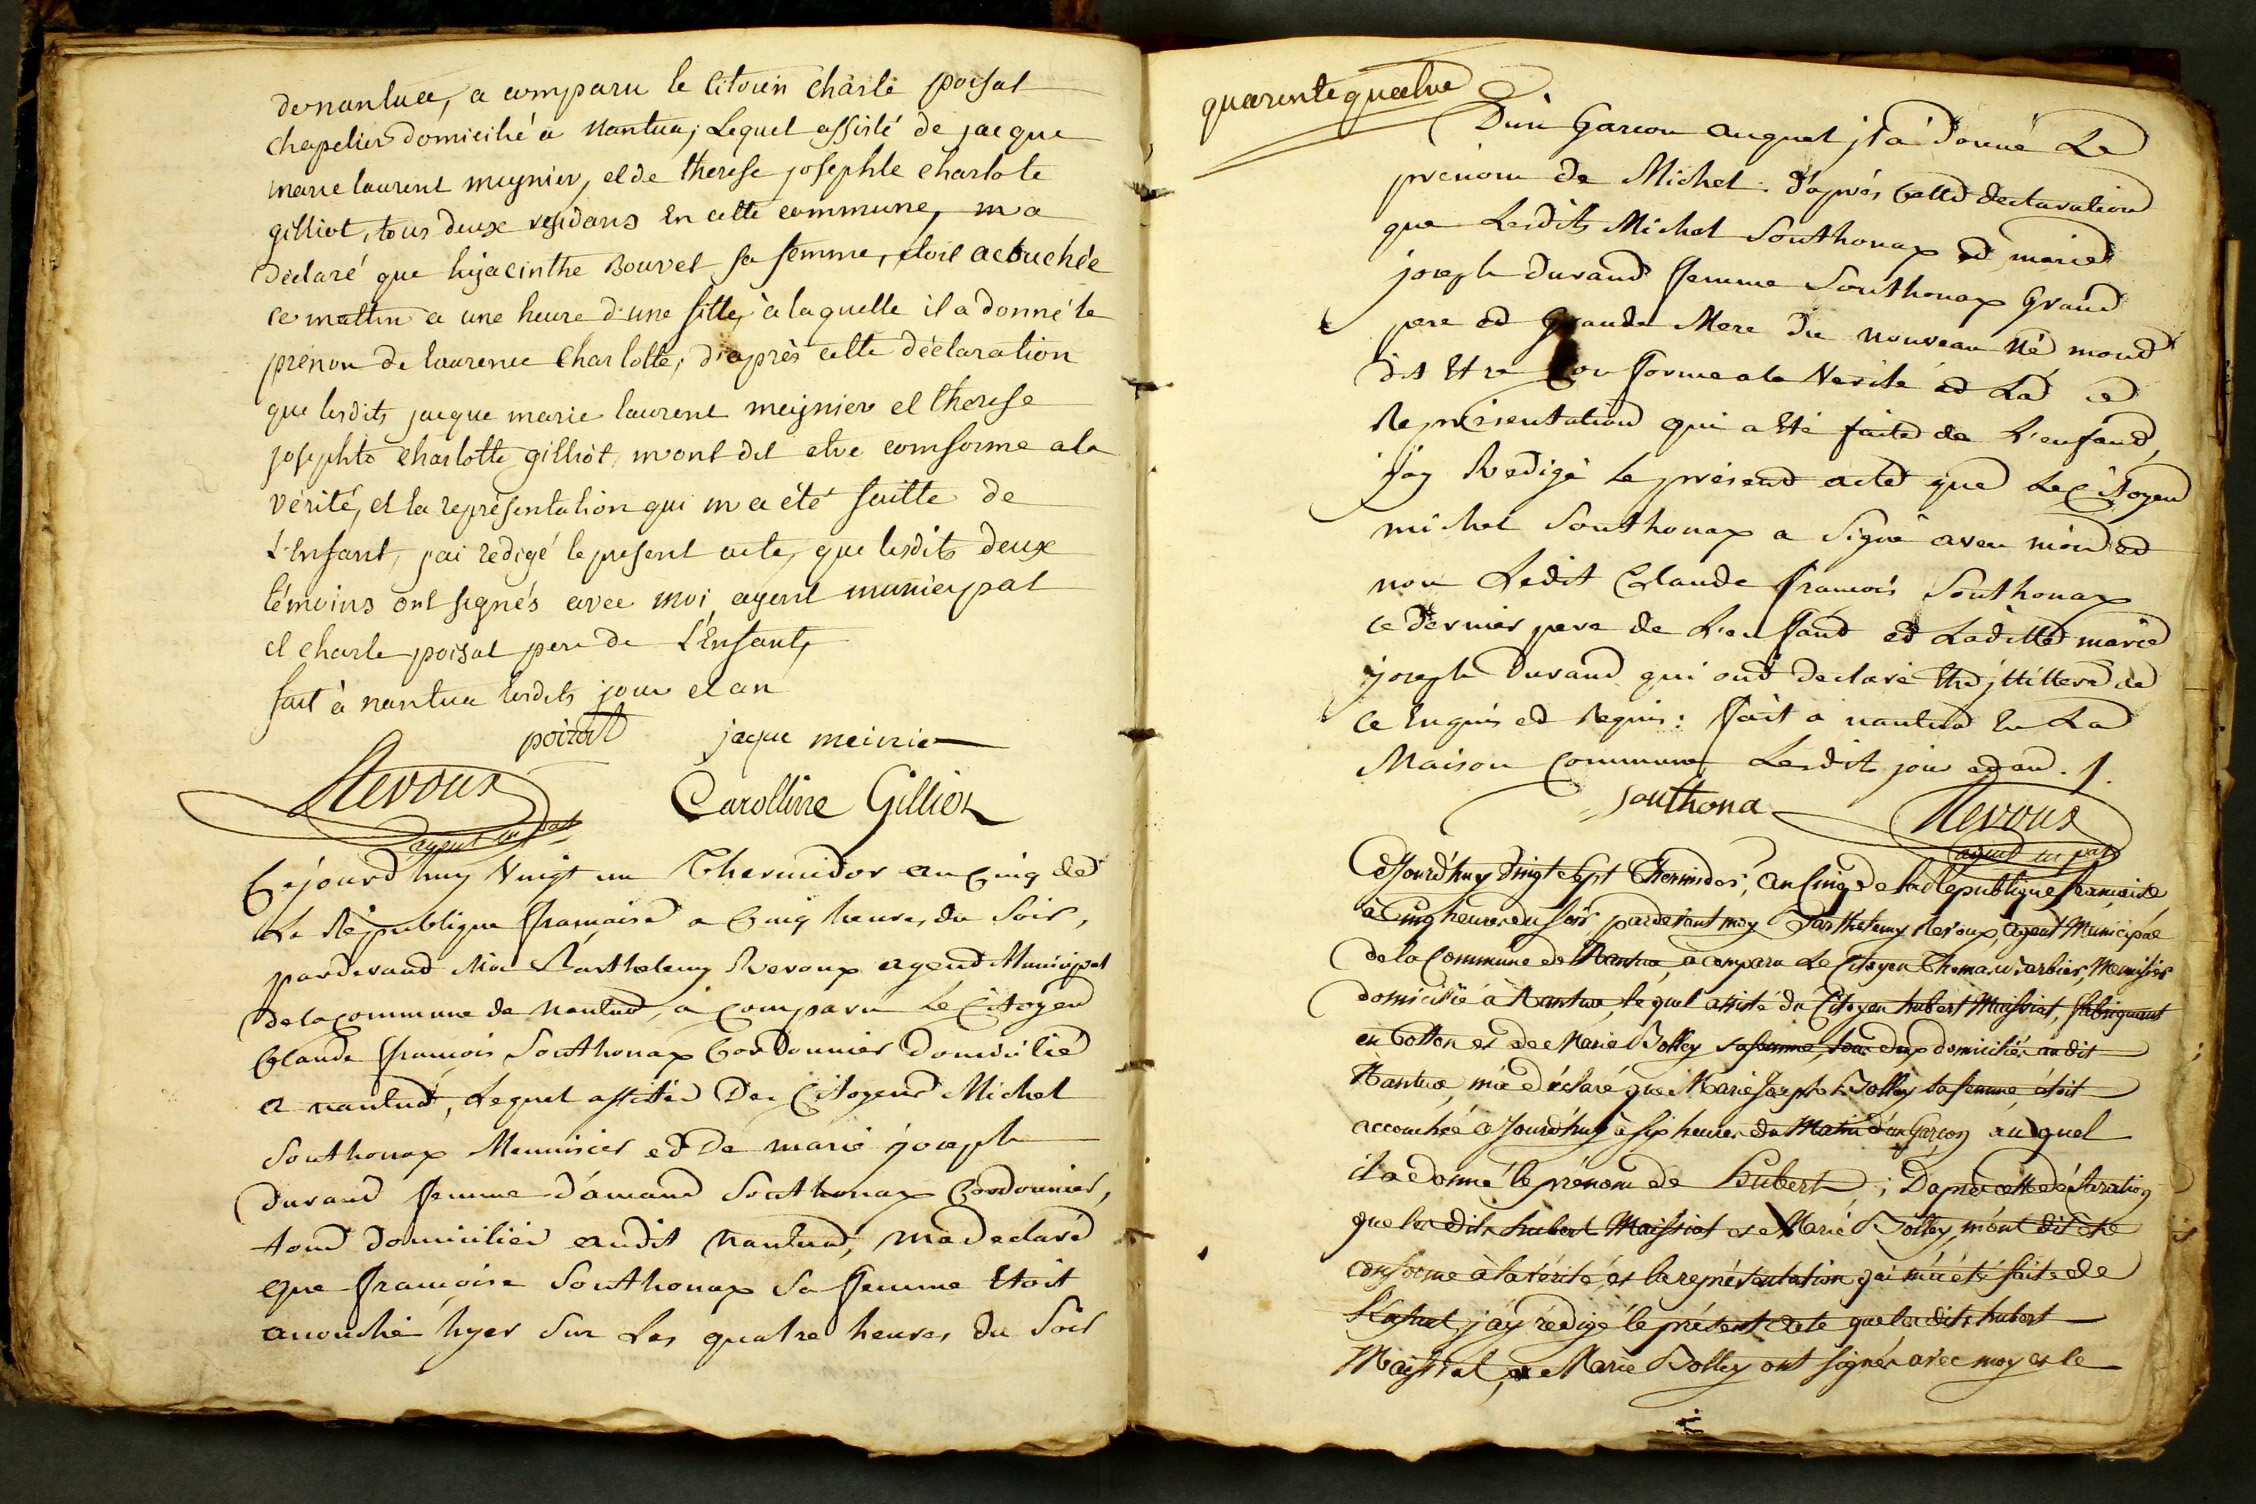 de nantua, a comparu le Citoien Charle poisat
Chapelier domicilié a Nantua, Lequel assisté de jacque
marie laurent meynier, et de therese josephte charlote
gilliot, tous deux residans En cette commune, m'a
déclaré que hyacinthe Bouvet sa femme, étoit acouchée
ce mattin a une heure d'une fille, à laquelle il a donné le
prenom de laurence Charlotte, d'après cette déclaration
que lesdits jacque marie laurent meynier et therese
josephte Charlotte gilliot m'ont dit etre comforme a la
vérité, et la représentation qui m'a été faitte de
L'Enfant, j'ai redigé le present acte, que lesdits deux
témoins ont signés avec moi agent municypal
et charle poisat pere de L'Enfant,
fait à nantua lesdits jour et an
poizat jaque meinier
Revoux Carolline Gilliot
agent mpal
Cejourd'huy Vingt un Thermidor an Cinq de
La Republique francaise a Cinq heures du Soir,
pardevand Moi Barthelemy Reroux agend Municipal
de la commune de Nantua, a Comparu Le Citoyen
Claude francois Southonax Cordonnier domicilié
a nantua, Lequel assisté Des Citoyens Michel
Southonax Menuisier et De marie joseph
durand femme d'amand Southonax Cordonnier,
tous domiciliés audit Nantua, m'a Declaré
que francoise Southonax Sa femme Etoit
acouché hyer Sur Les quatre heures du Soir
quarente quatre
D'un Garcon auquel jl a Donné Le
prenom de Michel. d'après Cette declaration
que Lesdits Michel Southonax et marie
joseph durand femme Southonax Grand
pere et Grande Mere du nouveau né mont
dit Etre Conforme a la Verité et La
Représentation qui a Eté faite de L'enfand,
j'ay Redigé Le présend acte que Le Citoyen
michel Southonax a Signé avec moi et
non Ledit Claude francois Southonax
ce dernier pere de L'enfand et Laditte marie
joseph Durand qui ont declaré Etre jllitteré de
Ce Enquis et Requis: fait a nantua En La
Maison Commune Lesdits jour et an ./.
southona Revoux
agent mpal
Cejourd'huy Vingt sept Thermidor, an Cinq de la République française
à Cinq heures du soir, pardevant moy Barthelemy Reroux, agent Municipal
de la Commune de Nantua, a comparu Le Citoyen Thomas Barbier, Menuisier
domicilié à Nantua, lequel assisté du Citoyen hubert Maissiat, fabriquant
en Cotton et de Marie Bolley sa femme, tous deux domiciliés audit
Nantua, m'a déclaré que Marie Joseph Bolley sa femme, étoit
accouchée aJourd'huy à six heures du Matin d'un Garçon auquel
il a donné le prénom de Hubert; D'après cette déclaration
que les dits hubert Maissiat et Marie Bolley, m'ont dit être
conforme à la vérité, et la représentation qui m'a été faite de
L'enfant, j'ay rédigé le présent acte que les dits hubert
Maissiat, et Marie Bolley ont signés avec moy et le